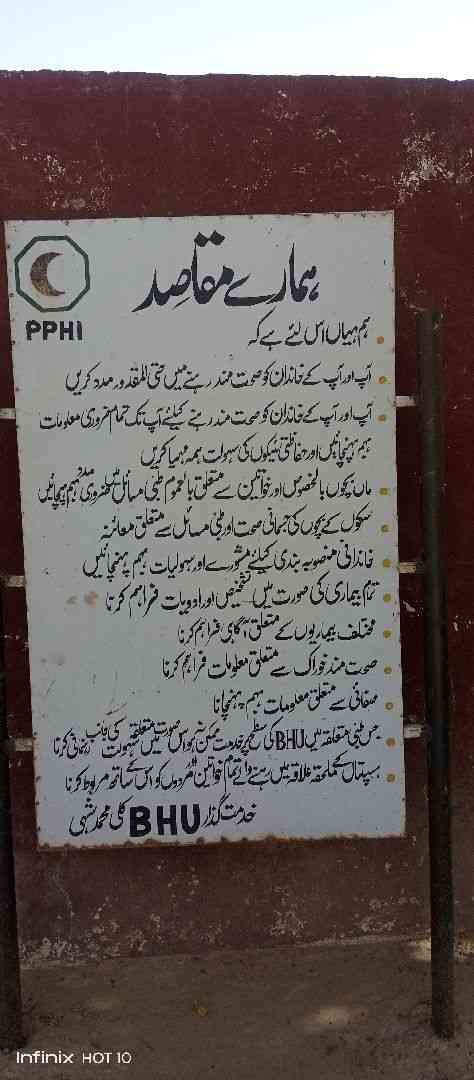 ہمارے مقاصد
PPHI
ہم یہاں اس لئے ہے کہ
آپ اور آپ کے خاندان کو صحت مند رہنے میں حتی المقدور مدد کریں
آپ اور آپ کے خاندان کو صحت مند رہنے کیلئے آپ تک تمام ضروری معلومات
بہم پہنچائیں اور حفاظتی ٹیکوں کی سہولت بہم مہیا کریں
ماں بچوں بالخصوص اور خواتین سے متعلق بالعموم طبی مسائل میں ضروری مدد بہم پہنچائیں
سکول کے بچوں کی جسمانی صحت اور طبی مسائل سے متعلق معائنہ
خاندانی منصوبہ بندی کیلئے مشورے اور سہولیات بہم پہنچائیں
تمام بیماری کی صورت میں تشخیص اور ادویات فراہم کرنا
مختلف بیماریوں کے متعلق آگاہی فراہم کرنا
صحت مند خوراک سے متعلق معلومات فراہم کرنا
صفائی سے متعلق معلومات بہم پہنچانا
جس طبی متعلقہ میں BHU کی سطح پر خدمت ممکن نہ ہو اس صورت میں متعلقہ سہولت کی جانب رہنمائی کرنا
ہسپتال کے ملحقہ علاقہ میں رہنے والے تمام خواتین اور مردوں کو اس کے ساتھ مربوط کرنا
خدمت گذار BHU کلی محمد شہی
Infinix HOT 10